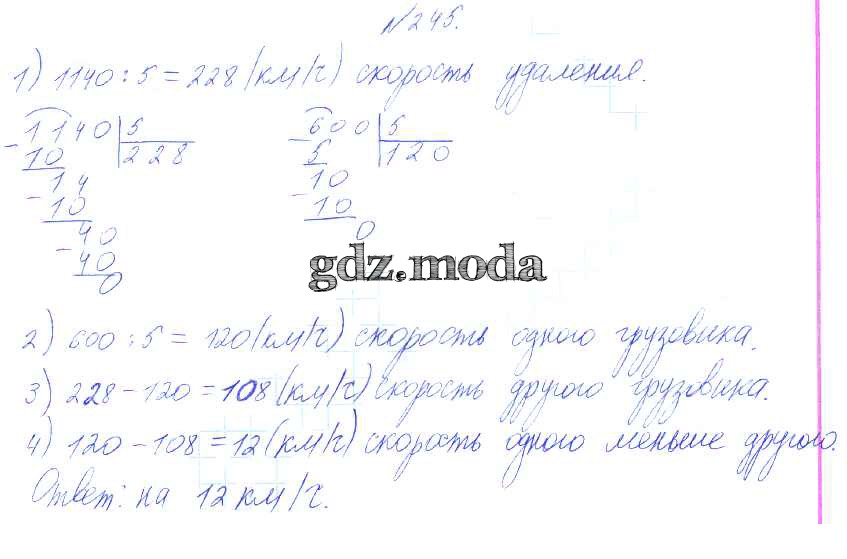 №245.
1) 1140 : 5 = 228 (км/ч) скорость удаления.
1140 | 5
10
228
14
10
40
40
0
600 | 5
5
120
10
10
0
gdz.moda
2) 600 : 5 = 120 (км/ч) скорость одного грузовика.
3) 228 - 120 = 108 (км/ч) скорость другого грузовика.
4) 120 - 108 = 12 (км/ч) скорость одного меньше другого.
Ответ: на 12 км/ч.